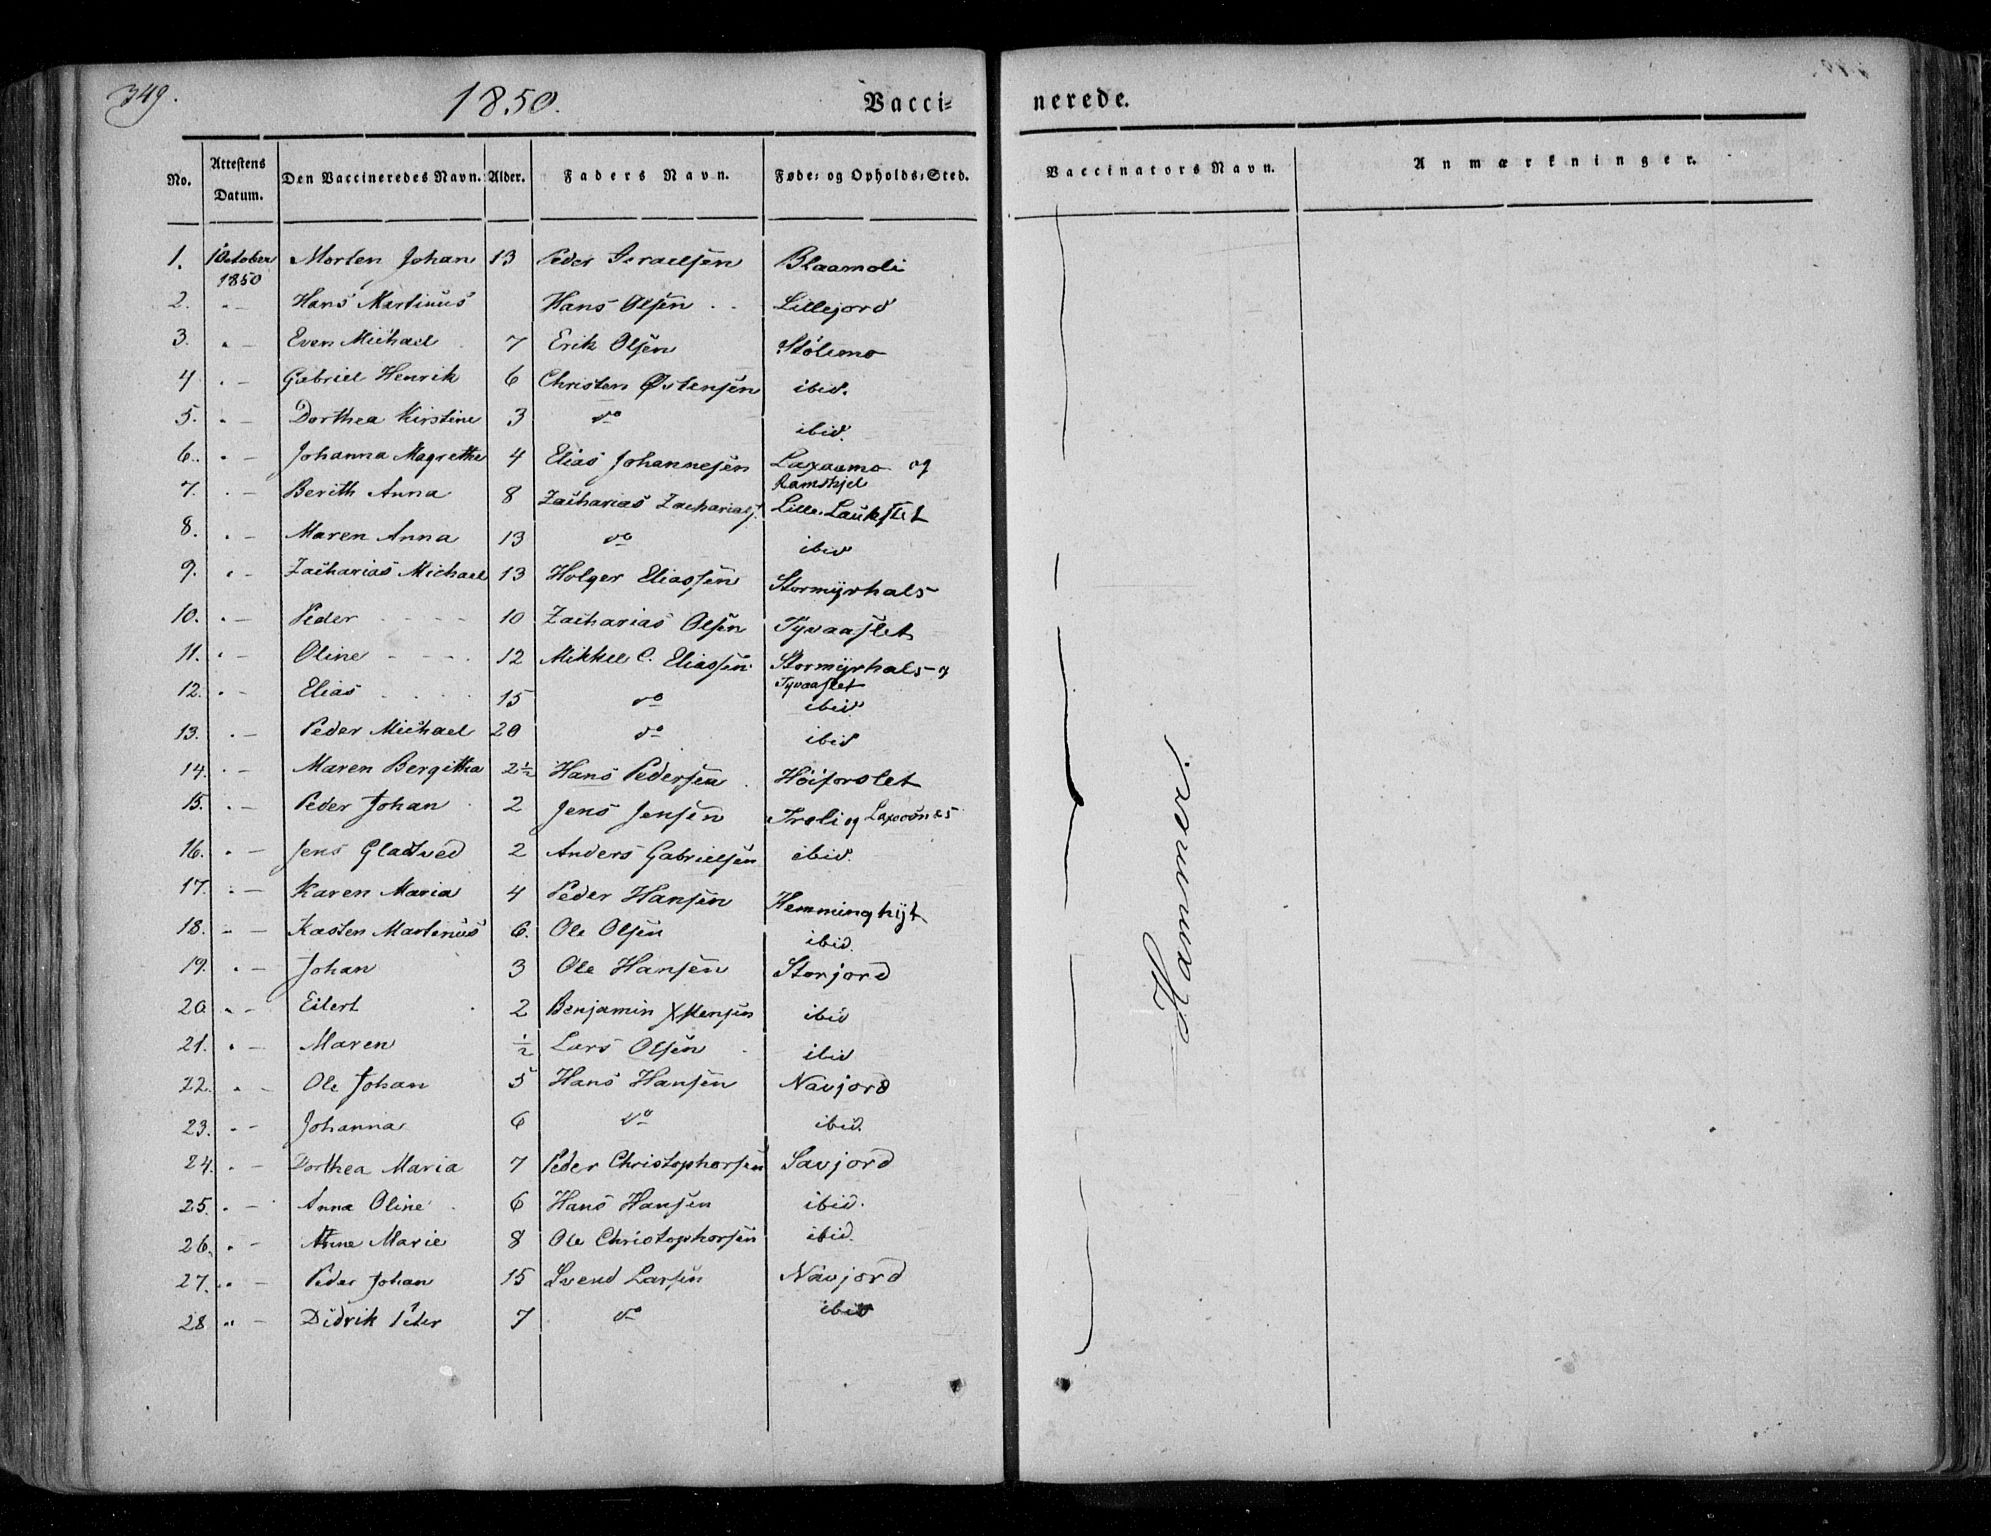 349.
1850.
Vacci-
nerede.
No. Attestens Datum. Den Vaccineredes Navn. Alder. Faders Navn. Føde- og Opholds-Sted. Vaccinators Navn. Anmærkninger.
1. 1October 1850 Morten Johan 13 Peder Israelsen Blaamoli
2. " — Hans Martinus Hans Olsen Lillejord
3. " — Even Michael 7 Erik Olsen Stölemo
4 " — Gabriel Henrik 6 Christen Østensen ibid.
5. " — Dorthea Kirstine 3 do ibid.
6. " — Johanna Magrethe 4 Elias Johannesen Laxaamo og Ramskjel
7. " — Berith Anna 8 Zacharias Zachariass. Lille Laukslet
8. " — Maren Anna 13 do ibid
9. " — Zacharias Michael 13 Holger Eliassen Stormyrhals
10. " — Peder 10 Zacharias Olsen Tyvaaslet
11. " — Oline 12 Mikkel C. Eliassen Stormyrhals og Tyvaaslet
12. " — Elias 15 do ibid
13. " — Peder Michael 20 do ibid
14. " — Maren Bergitha 2½ Hans Pedersen Höiforslet
15. " — Peder Johan 2 Jens Jensen Troli og Laxaanæs
16. " — Jens Gladved 2 Anders Gabrielsen ibid.
17. " — Karen Maria 4 Peder Hansen Hemminghyt
18. " — Kasten Martinus 6. Ole Olsen ibid.
19. " — Johan 3 Ole Hansen Storjord
20 " — Eilert 2 Benjamin Xstensen ibid
21. " — Maren ½ Lars Olsen ibid
22. " — Ole Johan 5 Hans Hansen Navjord
23. " — Johanna 6 do ibid.
24. " — Dorthea Maria 7 Peder Christophersen Savjord
25. " — Anna Oline 6 Hans Hansen ibid.
26. " — Anne Marie 8 Ole Christophorsen ibid.
27. " — Peder Johan 15 Svend Larsen Navjord
28 " — Didrik Peter 7 do ibid
Hammer.